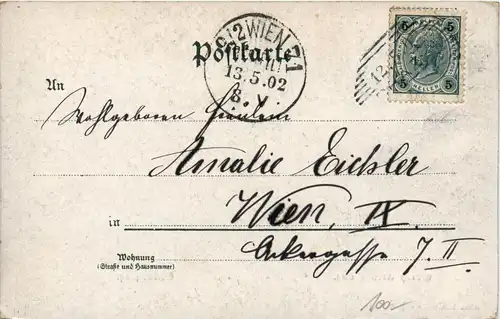 Postkarte
9/2 WIEN 7 1
13.5.02
8.V
5 HELLER 5
12
An
Wohlgeboren Fräulein
Amalie Eichler
in Wien, IX.
Wohnung
(Straße und Hausnummer)
Ackergasse 7. II
100.-